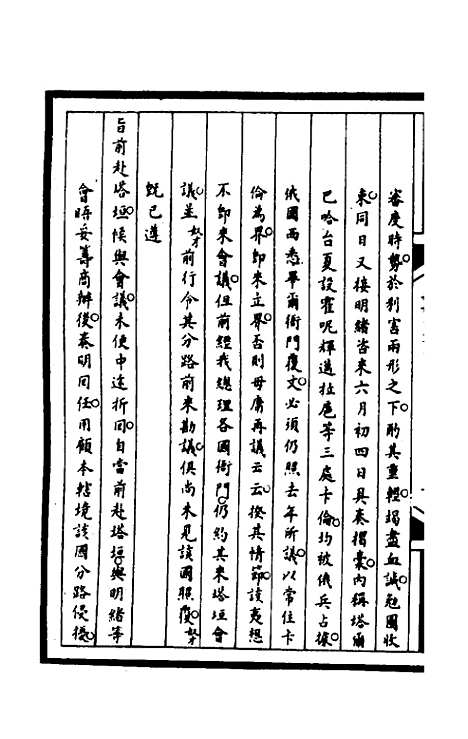 審度時勢於利害兩形之下酌其重輕竭盡血誠勉圖收
束同日又接明緒咨來六月初四日具奏摺稾內稱塔爾
巴哈台夏設霍呢邁拉扈等三處卡倫均被俄兵占據
俄國西悉畢爾衙門覆文必須仍照去年所議以常住卡
倫為界即來立界否則毋庸再議云云揆其情節該夷想
不即來會議但前經我總理各國衙門仍約其來塔垣會
議並奴才前行令其分路前來勘議俱尚未見該國照覆奴才
既已遵
旨前赴塔垣候與會議未便中途折回自當前赴塔垣與明緒等
會晤妥籌商辦後奏明回任用顧本轄境該國分路侵擾